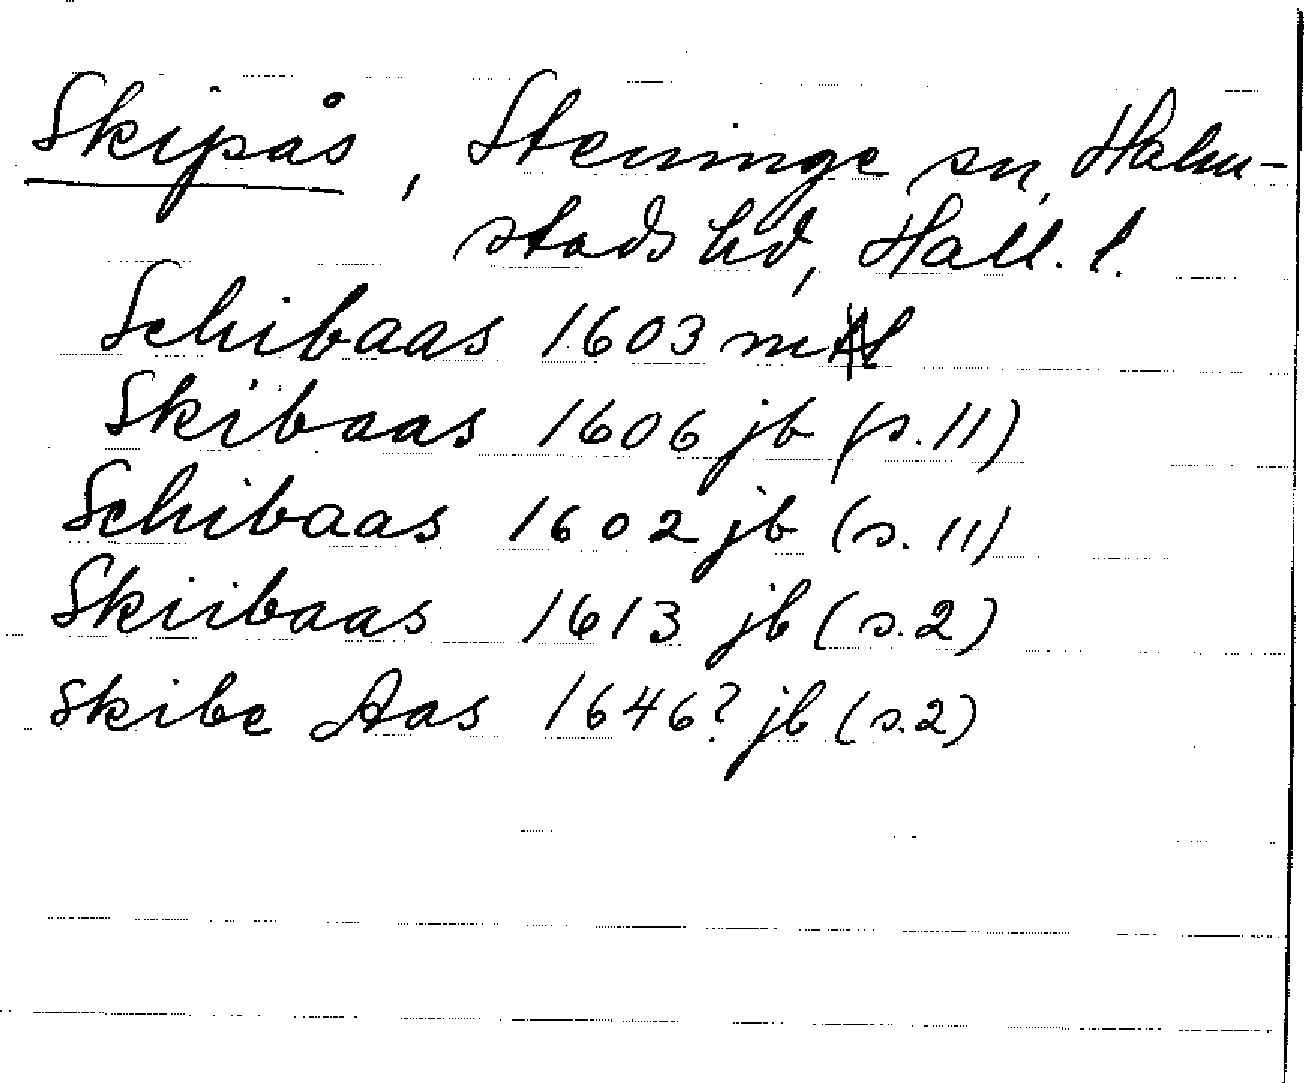 Skipås, Steninge sn, Halm-
stads hd, Hall. l.
Schibaas 1603 ml
Skibaas 1606 jb (s. 11)
Schibaas 1602 jb (s. 11)
Skiibaas 1613 jb (s. 2)
Skibe Aas 1646? jb (s. 2)